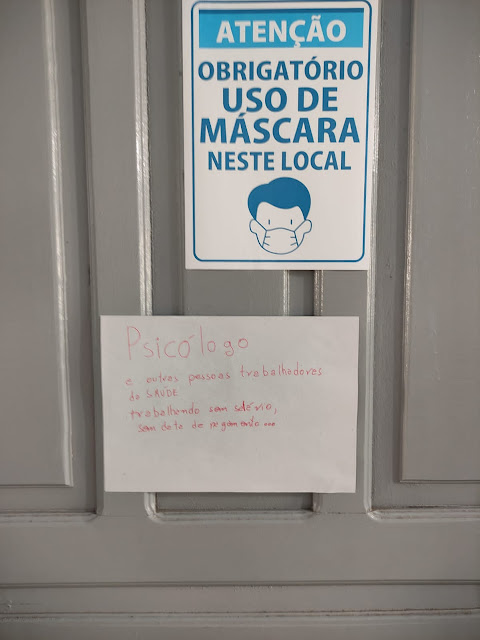 ATENÇÃO
OBRIGATÓRIO
USO DE
MÁSCARA
NESTE LOCAL
Psicólogo
e outras pessoas trabalhadoras
da SAÚDE
trabalhando sem salário,
sem data de pagamento...